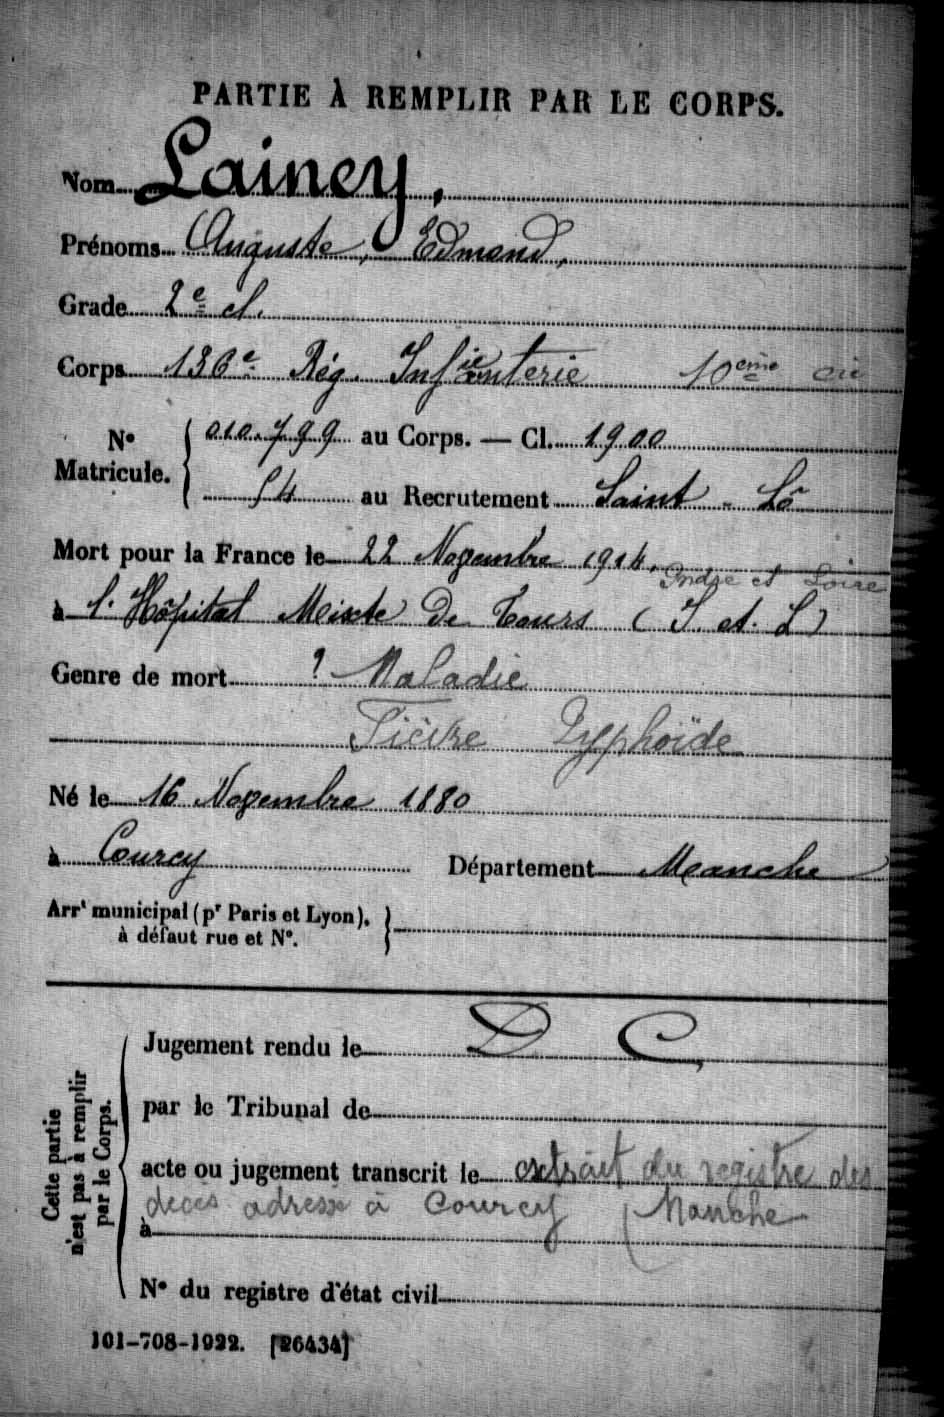 PARTIE À REMPLIR PAR LE CORPS.
Nom Lainey,
Prénoms Auguste, Edmond,
Grade 2e cl.
Corps 136e Rég. Infanterie 10eme cie
No Matricule. { 010.799 au Corps. — Cl. 1900
54 au Recrutement Saint-Lô
Mort pour la France le 22 Novembre 1914.
Indre et Loire
à l'Hôpital Mixte de Tours (I. et. L)
Genre de mort ? Maladie
Fièvre Typhoïde
Né le 16 Novembre 1880
à Courcy Département Manche
Arrt municipal (pr Paris et Lyon), }
à défaut rue et No.
Cette partie n'est pas à remplir par le Corps.
Jugement rendu le D C,
par le Tribunal de
acte ou jugement transcrit le extrait du registre des
deces adresse à Courcy (Manche
à
No du registre d'état civil
101-708-1922. [26434]